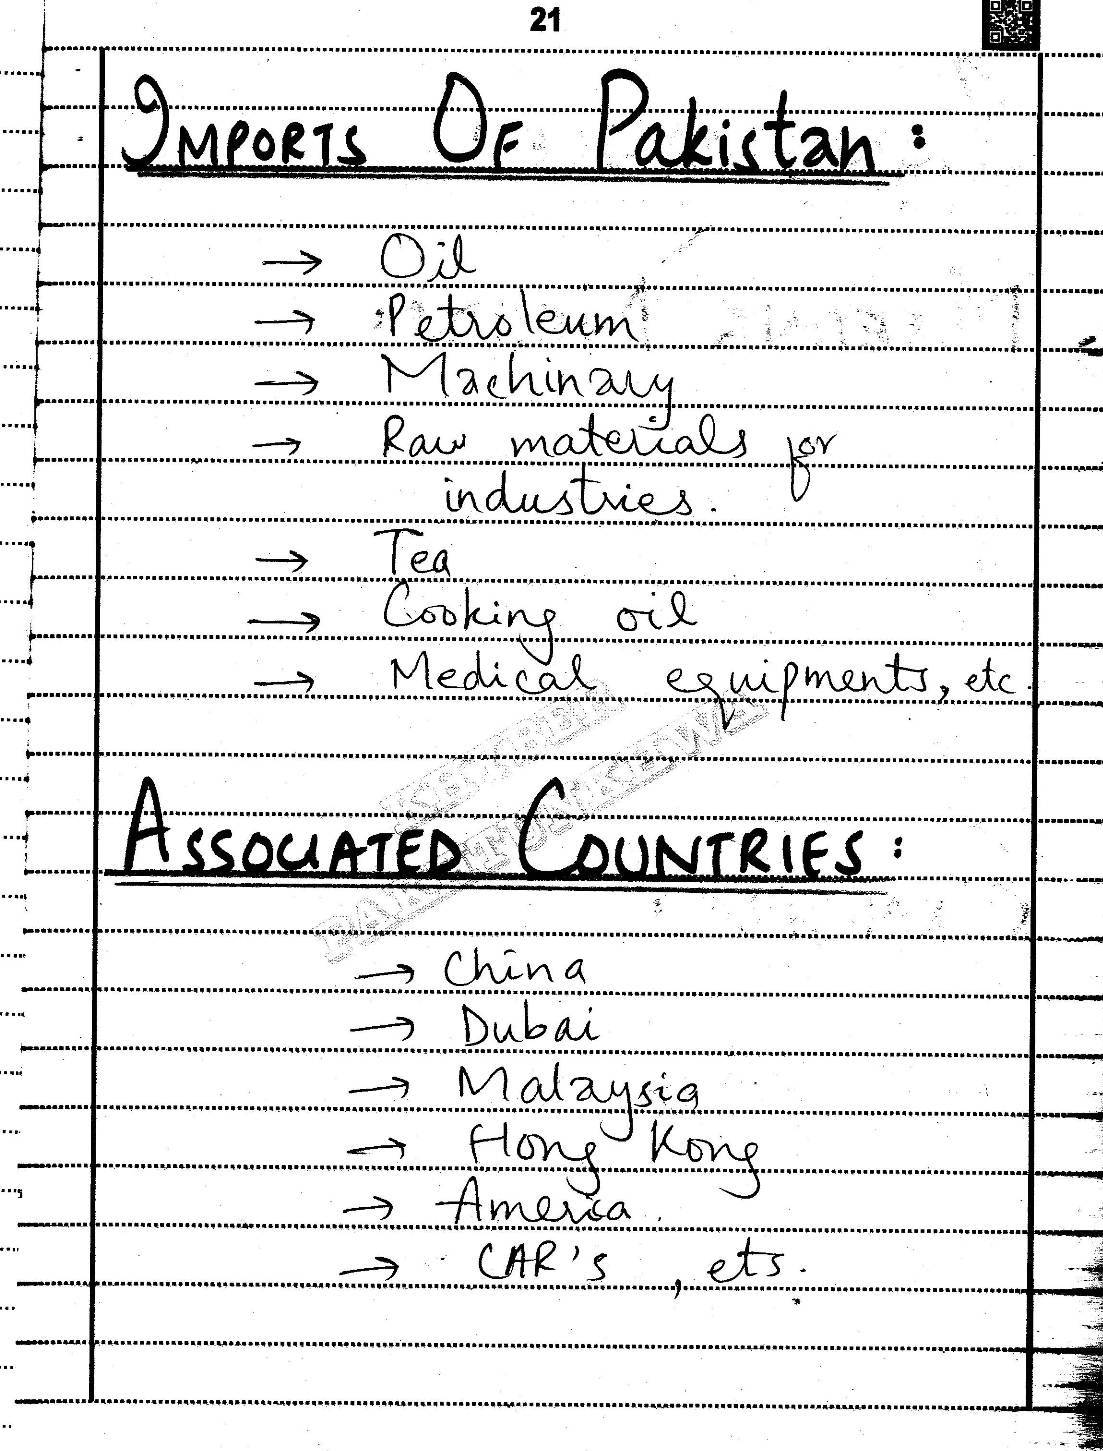 21
IMPORTS OF Pakistan :
→ Oil
→ Petroleum
→ Machinary
→ Raw materials for
industries.
→ Tea
→ Cooking oil
→ Medical equipments, etc.
KHYBER
PAKHTUNKHWA
ASSOCIATED COUNTRIES :
→ China
→ Dubai
→ Malaysia
→ Hong Kong
→ America.
→ CAR's , ets.